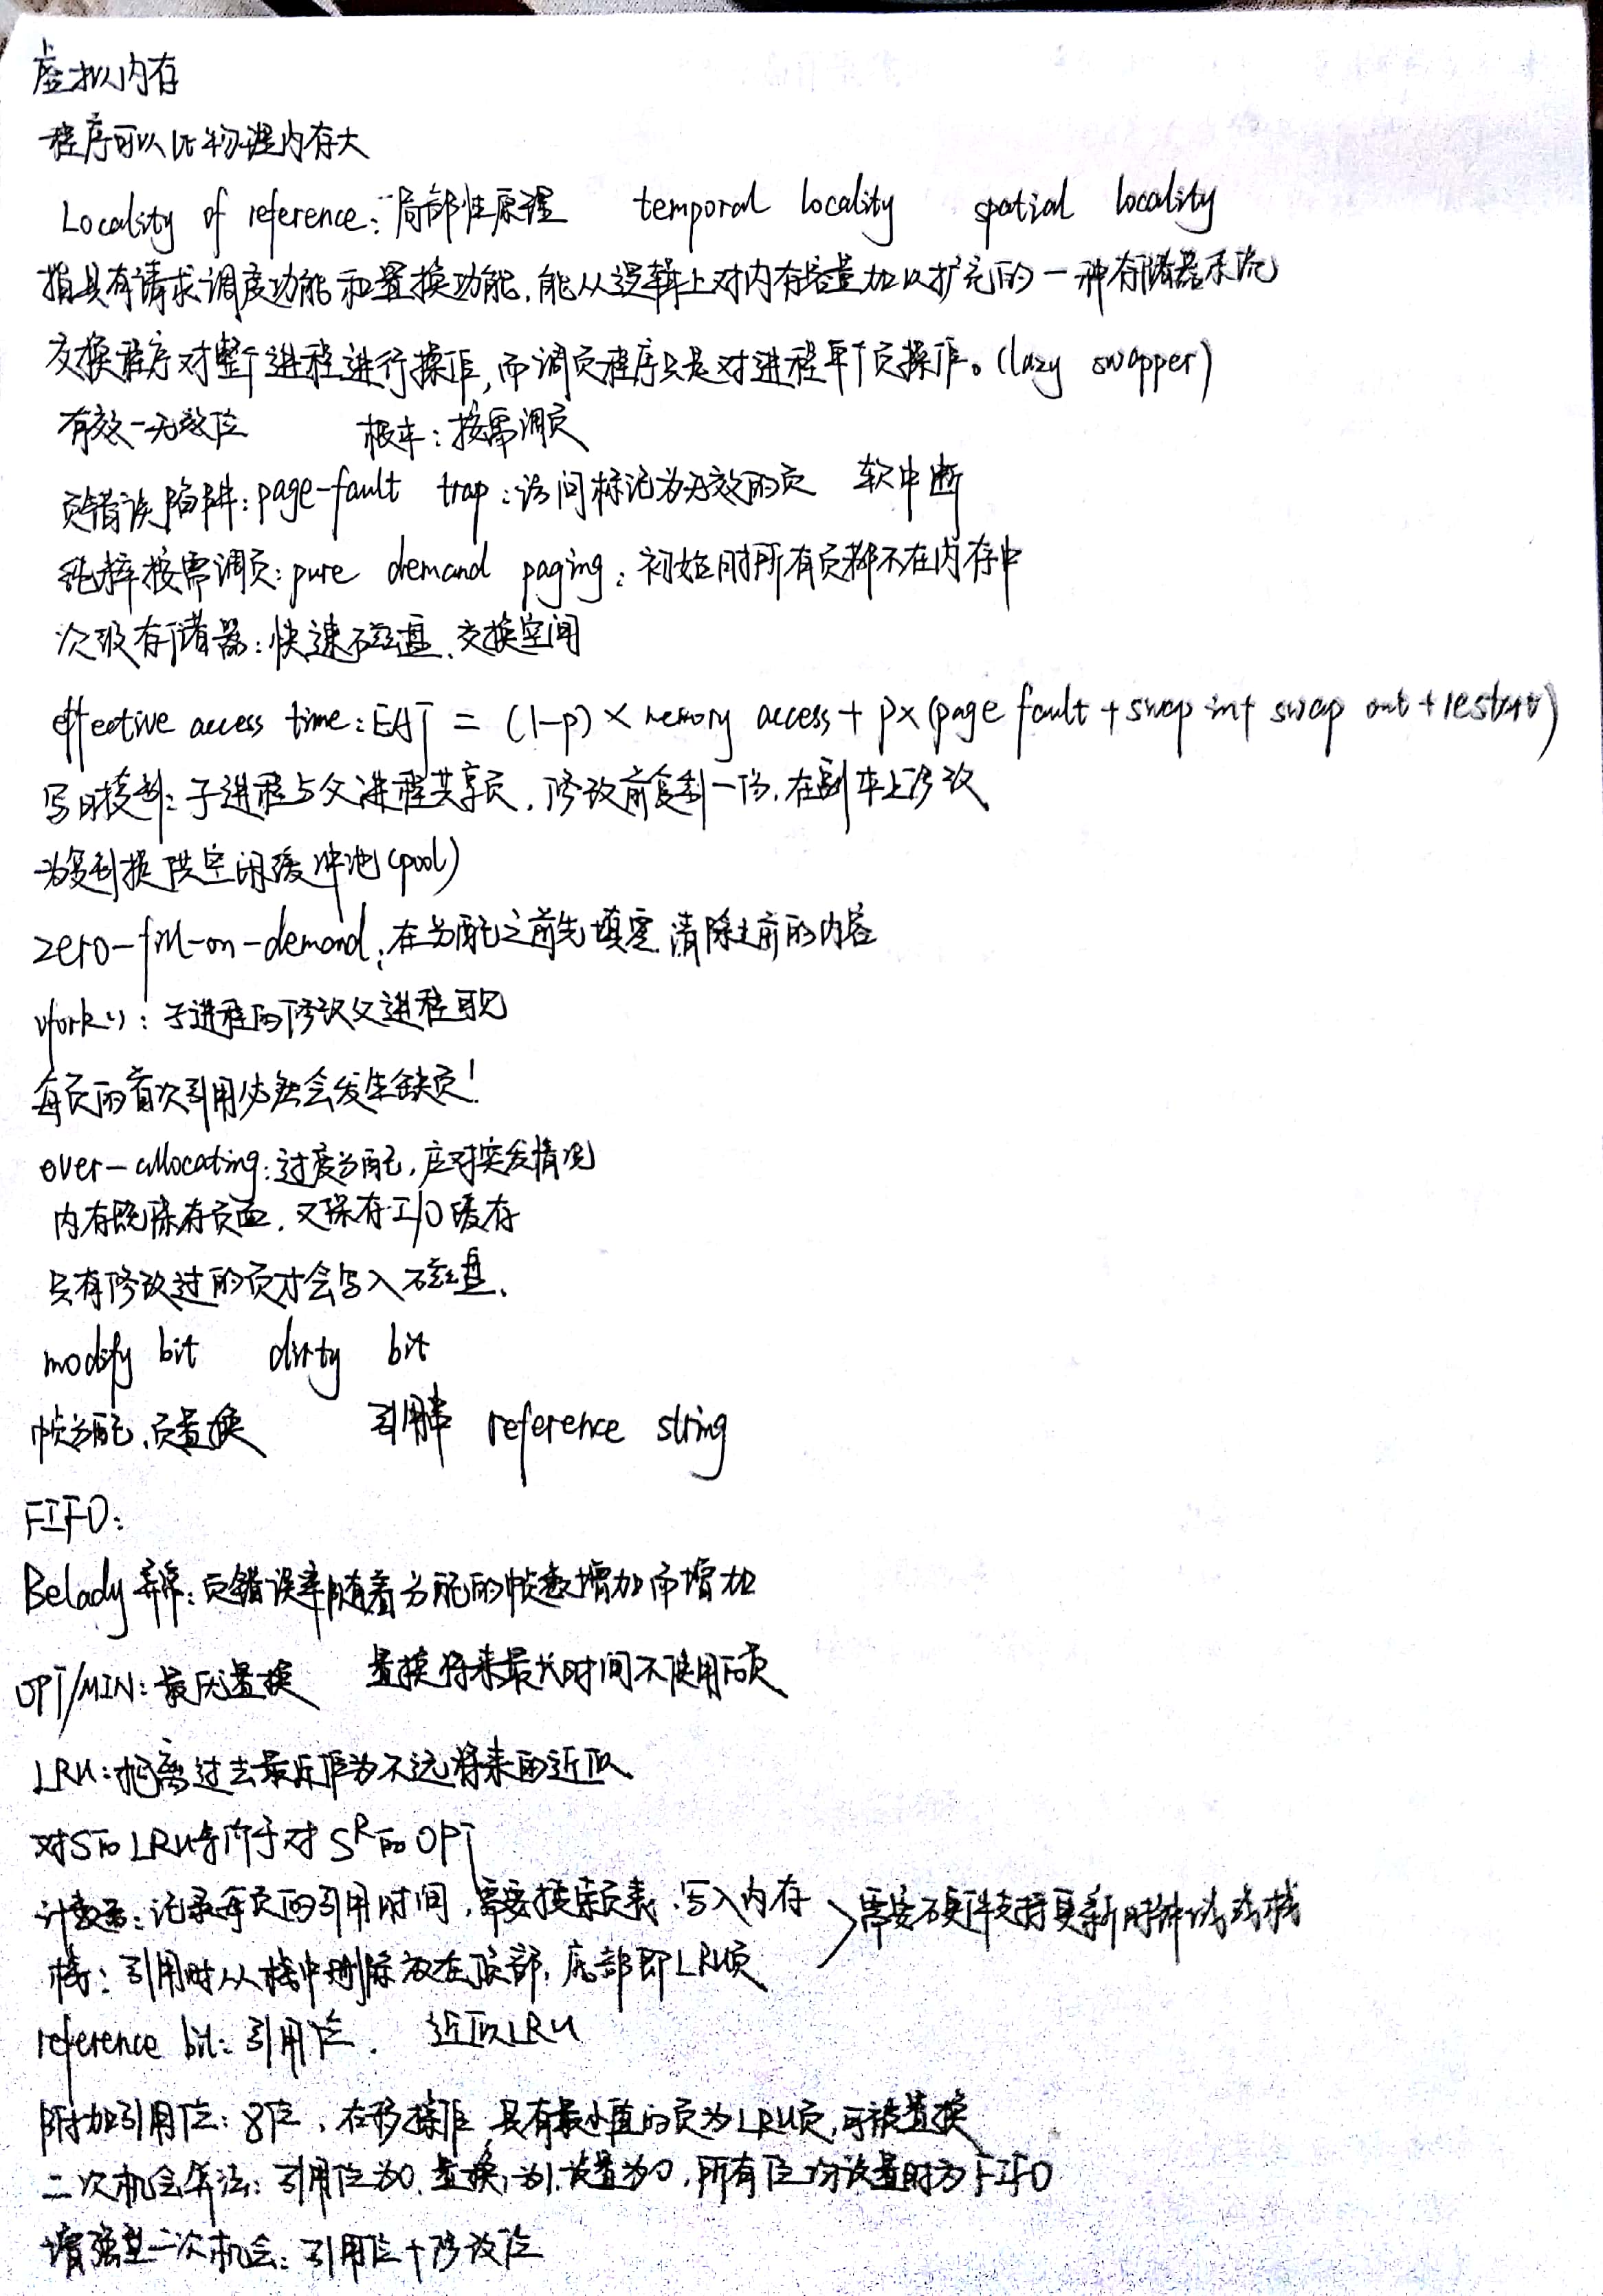 虚拟内存
程序可以比物理内存大
Locality of reference: 局部性原理 temporal locality spatial locality
指具有请求调度功能和置换功能,能从逻辑上对内存容量加以扩充的一种存储器系统
交换程序对整个进程进行操作,而调页程序只是对进程单个页操作。(lazy swapper)
有效-无效位 根本:按需调页
页错误陷阱:page-fault trap:访问标记为无效的页 软中断
纯粹按需调页:pure demand paging:初始时所有页都不在内存中
次级存储器:快速磁盘、交换空间
effective access time:EAT = (1-p) × memory access + p×(page fault + swap in + swap out + restart)
写时复制:子进程与父进程共享页,修改前复制一份,在副本上修改
为复制提供空闲缓冲池(pool)
zero-fill-on-demand:在分配之前先填零 清除之前的内容
vfork():子进程的修改父进程可见
每页的首次引用必然会发生缺页!
over-allocating:过度分配,应对突发情况
内存既保存页面,又保存I/O缓存
只有修改过的页才会写入磁盘、
modify bit dirty bit
帧分配、页置换 引用串 reference string
FIFO:
Belady异常:页错误率随着分配的帧数增加而增加
OPT/MIN:最优置换 置换将来最长时间不使用的页
LRU:把离过去最近作为不远将来的近似
对S的LRU等价于对S^R的OPT
计数器:记录每页的引用时间,需要搜索页表、写入内存
栈:引用时从栈中删除放在顶部,底部即LRU页
需要硬件支持更新时钟域或栈
reference bit:引用位. 近似LRU
附加引用位:8位,右移操作 具有最小值的页为LRU页,可被置换
二次机会算法:引用位为0,置换,为1,设置为0,所有位均设置时为FIFO
增强型二次机会:引用位+修改位